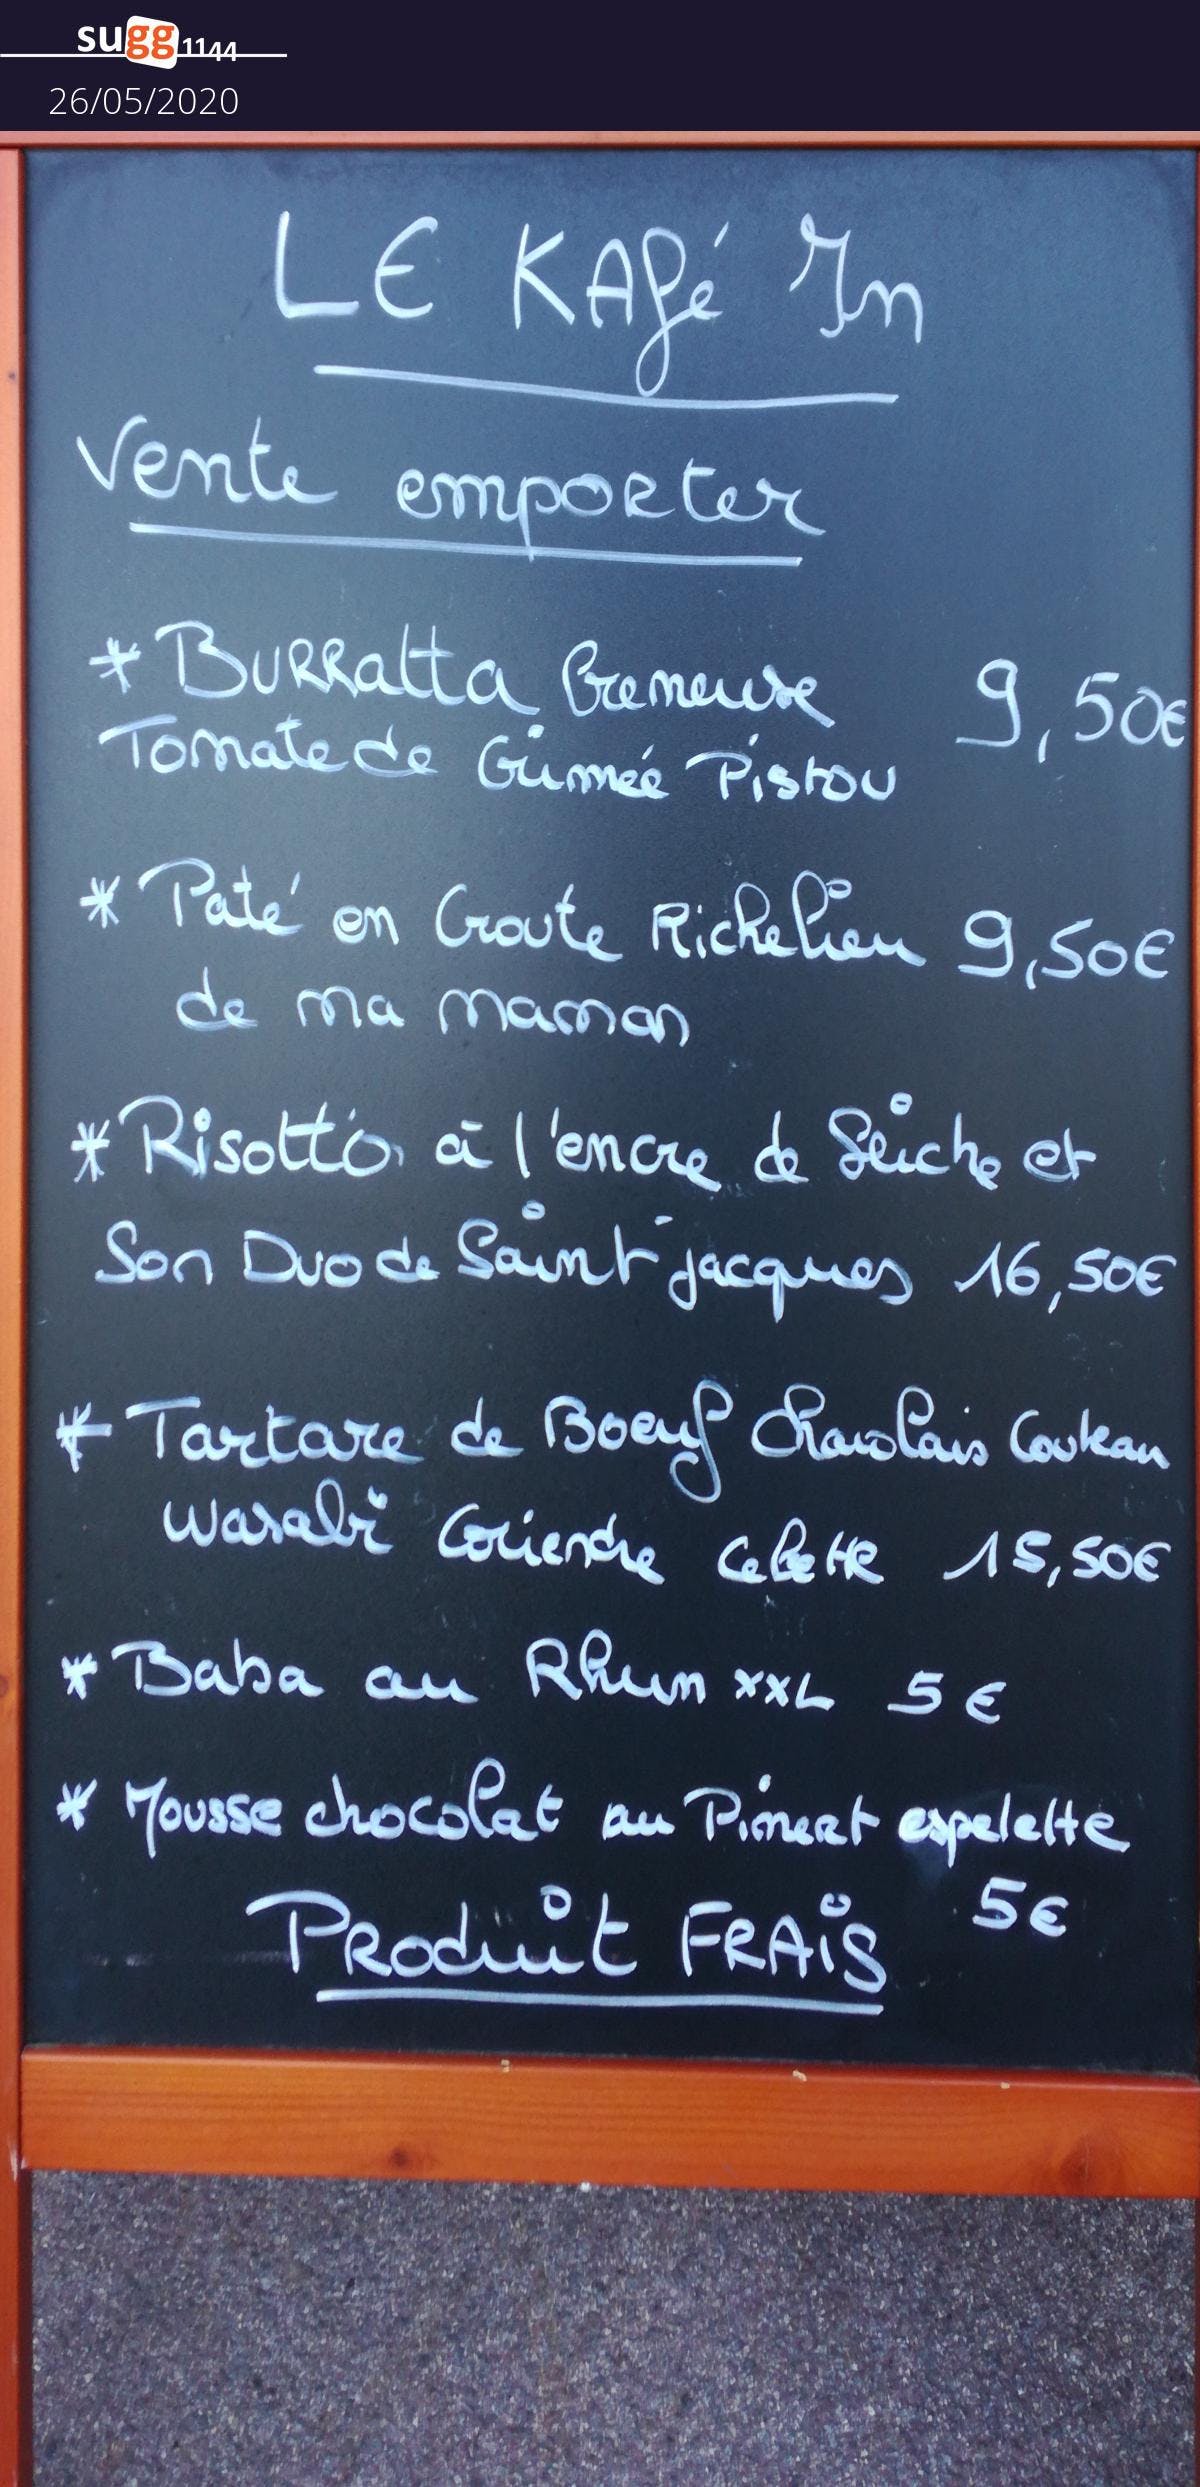 sugg1144
26/05/2020
LE KAfé In
Vente emporter
* BURRatta Cremeuse 9,50€
Tomate de Grimée Pistou
* Paté en Croute Richelieu 9,50€
de ma maman
* Risotto à l'encre de Seiche et
Son Duo de Saint jacques 16,50€
* Tartare de Boeuf Charolais Couteau
Wasabi Coriendre Cebette 15,50€
* Baba au Rhum XXL 5€
* Mousse chocolat au Piment espelette
5€
PRoduit FRAiS